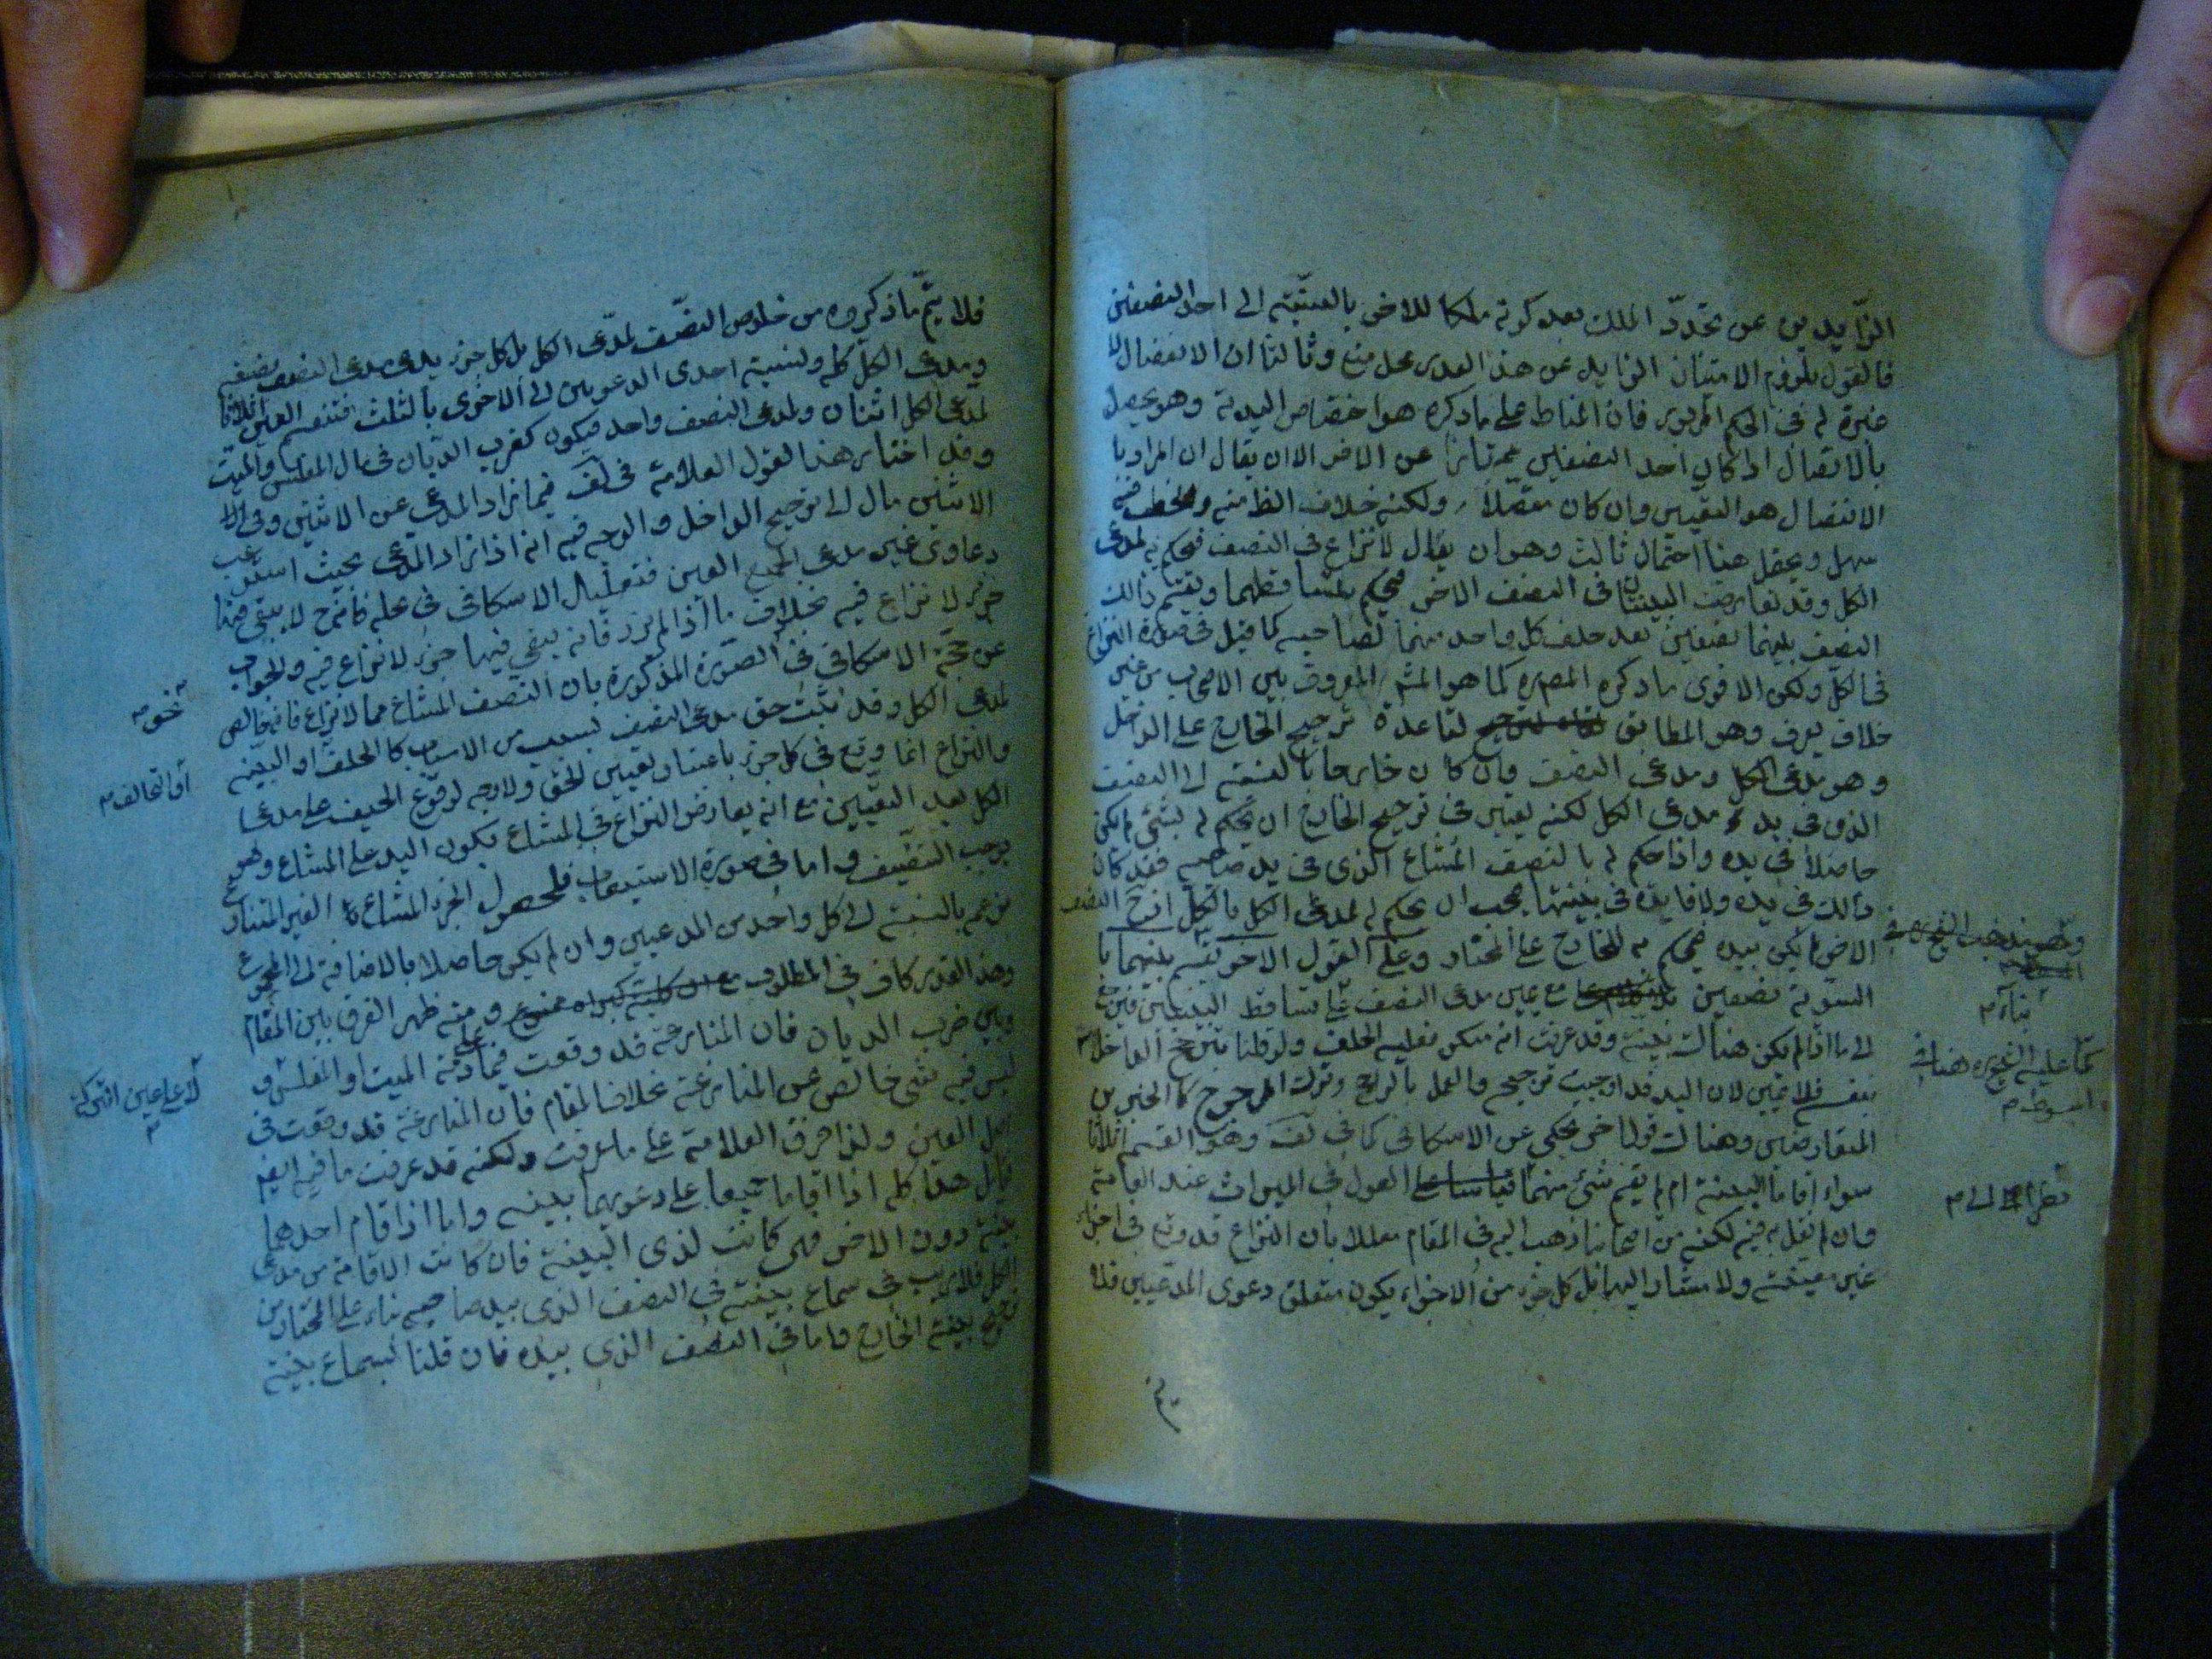 الزايد من عن تجدد الملك بعد كونه ملكا للاخر بالنسبة الى احد النصفين
فالقول بلزوم الامتنان الزايد عن هذا العدى محل منع وثالثا ان الانفصال لا
عبرة له فى الحكم المزبور فان المناط على ما ذكره هو اختصاص اليد به وهو يحصل
بالاتصال اذا كان احد النصفين ممتازا عن الاخر الا ان يقال ان المراد با
الانفصال هو التعيين وان كان متصلا ولكنه خلاف الظ منه والخطب فيه
سهل ويحتمل هنا احتمال ثالث وهو ان يقال لا نزاع فى النصف فيحكم به لمدعى
الكل وقد تعارضت البينتان فى النصف الاخر فيحكم بتساقطهما ويقسم ذلك
النصف بينهما نصفين بعد حلف كل واحد منهما لصاحبه كما قيل فى صورة النزاع
فى الكل ولكن الاقوى ما ذكره المصره كما هو المش المعروف بين الاصحاب من غير
خلاف يعرف وهو المطابق لقاعدة ترجيح الخارج على الداخل
وهو مدعى الكل ومدعى النصف وان كان خارجا بالنسبة الى النصف
الذى فى يد مدعى الكل لكنه يعتبر فى ترجيح الخارج ان يحكم له بشئ لم يكن
حاصلا فى يده واذا حكم له بالنصف المشاع الذى فى يد صاحبه فقد كان
ذلك فى يده ولا فايدة فى بينتها يجب ان يحكم لمدعى الكل بالكل اذ النصف
الاخر لم يكن بيده فيحكم به للخارج على المختار وعلى القول الاخر يقسم بينهما با
السوية نصفين مع يمين مدعى النصف على تساقط البينتين فيرجع
الى ما اذا لم يكن هناك بينة وقد عرفت انه منكر فعليه الحلف ولو قلنا بترجيح الداخل
بنفسه فلا يمين لان اليد قد اوجبت ترجيحه والعمل بالراجح وترك المرجوح كالخبرين
المتعارضين وهناك قول اخر يحكى عن الاسكافى كما فى لف وهو القسم اثلاثا
سواء اقاما البينة ام لم يقم شئ منهما العول فى الميراث عند العامة
وان لم نقل به فيه لكنه من اصحابنا ذهب اليه فى المقام معللا بان النزاع قد وقع فى اجزاء
غير معينة ولا مشار اليها بل كل جزء من الاجزاء يكون متعلق دعوى المدعيين فلا
بناء م
كما عليه الشيخ ره هنا فى
المبسوط م
نظرا الى م
فلا يتم ما ذكروه من خلوص النصف لمدعى الكل بل كل جزء يدعى مدعى النصف نصفه
ومدعى الكل كله ونسبة احدى الدعويين الى الاخرى بالثلث فتقسم العين اثلاثا
لمدعى الكل اثنان ولمدعى النصف واحد فيكون كضرب الديان فى مال المفلس والميت
وقد اختار هذا القول العلامة فى لف فيما زاد المدعى عن الاثنين وفى
الاثنين مال الى ترجيح الداخل والوجه فيه انه اذا زاد المدعى بحيث استوعب
دعاوى غير مدعى الجميع العين فتعليل الاسكافى فى محله فانه ح لا يبقى هنا
جزء لا نزاع فيه بخلاف ما اذا لم يزد فانه يبقى فيها جزء لا نزاع فيه والجواب
عن حجة الاسكافى فى الصورة المذكورة بان النصف المشاع مما لا نزاع فانه خالص
لمدعى الكل وقد ثبت حق مدعى النصف بسبب من الاسباب كالحلف او البينة
والنزاع انما وقع فى كل جزء باعتبار تعيين الحق ولا وجه لوقوع الحيف على مدعى
الكل بعد التعيين مع انه يعارض النزاع فى المشاع بكون اليد على المشاع وهو
يوجب التنصيف واما فى صورة الاستيعاب فلحصول الجزء المشاع الغير المتنازع
بزعمه بالنسبة الى كل واحد من المدعيين وان لم يكن حاصلا بالاضافة الى المجموع
وهذا القدر كاف فى المطلوب ومنه ظهر الفرق بين المقام
وبين ضرب الديان فان المنازعة قد وقعت فيما على ذمة الميت او المفلس و
ليس فيه شئ خالص عن المنازعة بخلاف المقام فان المنازعة قد وقعت فى
اصل العين ولذا فرق العلامة على ما عرفت ولكنه قد عرفت ما فيه ايضم
هذا كله اذا اقاما جميعا على دعويهما بينة واما اذا قام احدهما
بينة دون الاخر فهى كانت لذى البينة فان كانت الاقامة من مدعى
الكل فلا ريب فى سماع بينته فى النصف الذى بيد صاحبه بناء على المختار من
ترجيح بينة الخارج واما فى النصف الذى بيده فان قلنا بسماع بينة
او التحالف م
لا على عين التركة م